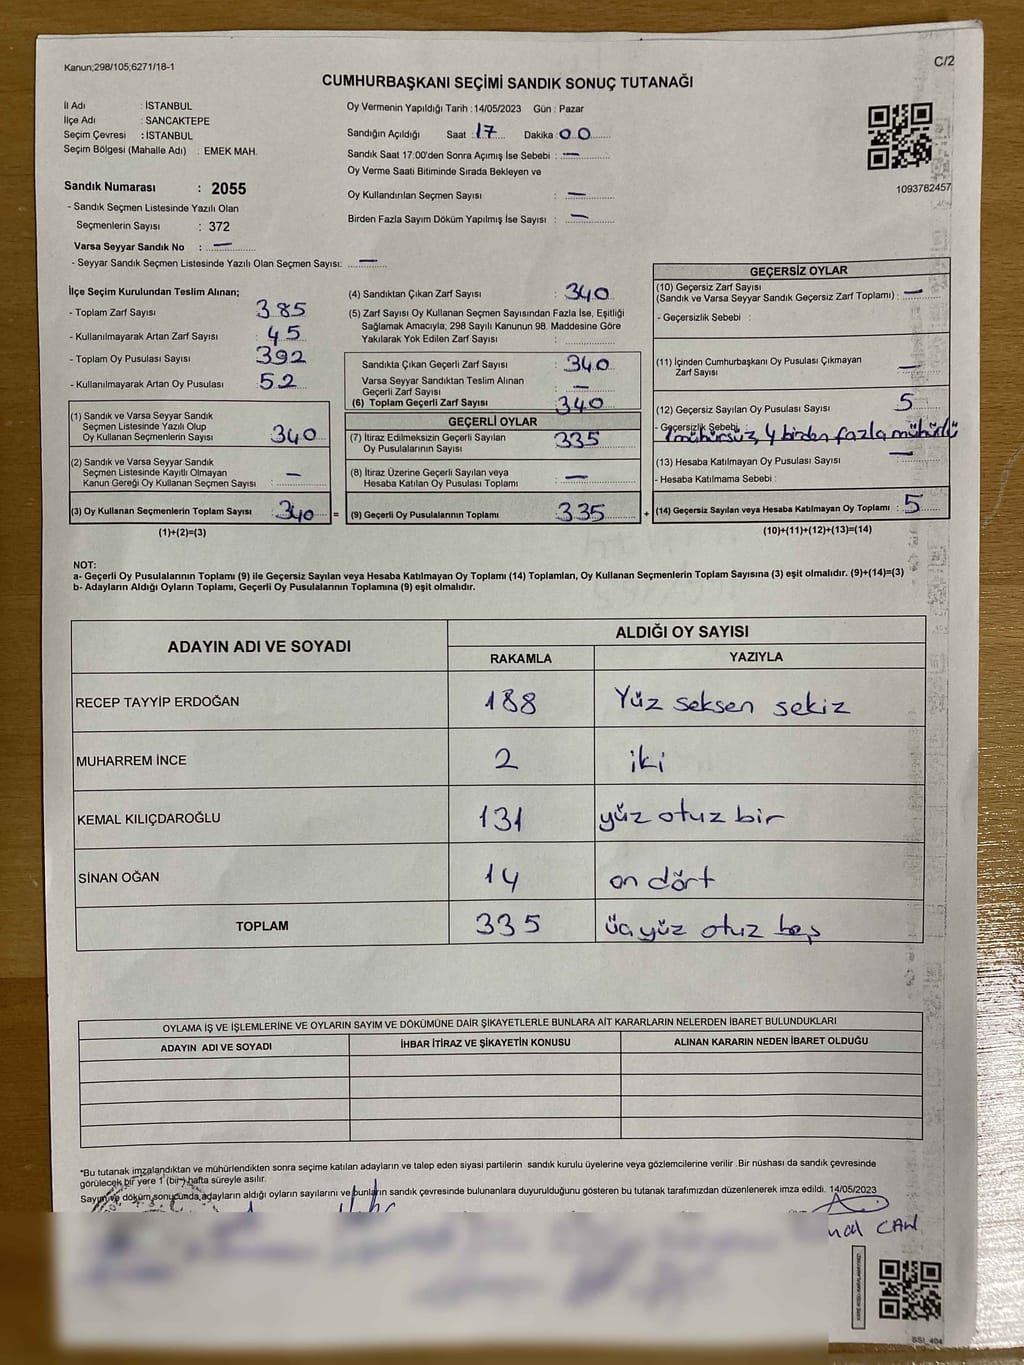 Kanun;298/105,6271/18-1
C/2
CUMHURBAŞKANI SEÇİMİ SANDIK SONUÇ TUTANAĞI
İl Adı : İSTANBUL
İlçe Adı : SANCAKTEPE
Seçim Çevresi : İSTANBUL
Seçim Bölgesi (Mahalle Adı) : EMEK MAH.
Oy Vermenin Yapıldığı Tarih : 14/05/2023 Gün : Pazar
Sandığın Açıldığı Saat : 17 Dakika : 00
Sandık Saat 17:00'den Sonra Açımış İse Sebebi : —
Oy Verme Saati Bitiminde Sırada Bekleyen ve
Oy Kullandırılan Seçmen Sayısı : —
Birden Fazla Sayım Döküm Yapılmış İse Sayısı : —
1093782457
Sandık Numarası : 2055
- Sandık Seçmen Listesinde Yazılı Olan
Seçmenlerin Sayısı : 372
Varsa Seyyar Sandık No : —
- Seyyar Sandık Seçmen Listesinde Yazılı Olan Seçmen Sayısı: —
İlçe Seçim Kurulundan Teslim Alınan;
- Toplam Zarf Sayısı 385
- Kullanılmayarak Artan Zarf Sayısı 45
- Toplam Oy Pusulası Sayısı 392
- Kullanılmayarak Artan Oy Pusulası 52
(1) Sandık ve Varsa Seyyar Sandık
Seçmen Listesinde Yazılı Olup
Oy Kullanan Seçmenlerin Sayısı 340
(2) Sandık ve Varsa Seyyar Sandık
Seçmen Listesinde Kayıtlı Olmayan
Kanun Gereği Oy Kullanan Seçmen Sayısı : —
(3) Oy Kullanan Seçmenlerin Toplam Sayısı : 340 =
(1)+(2)=(3)
(4) Sandıktan Çıkan Zarf Sayısı : 340
(5) Zarf Sayısı Oy Kullanan Seçmen Sayısından Fazla İse, Eşitliği
Sağlamak Amacıyla; 298 Sayılı Kanunun 98. Maddesine Göre
Yakılarak Yok Edilen Zarf Sayısı :
Sandıkta Çıkan Geçerli Zarf Sayısı : 340
Varsa Seyyar Sandıktan Teslim Alınan
Geçerli Zarf Sayısı : —
(6) Toplam Geçerli Zarf Sayısı : 340
GEÇERLİ OYLAR
(7) İtiraz Edilmeksizin Geçerli Sayılan
Oy Pusulalarının Sayısı : 335
(8) İtiraz Üzerine Geçerli Sayılan veya
Hesaba Katılan Oy Pusulası Toplamı : —
(9) Geçerli Oy Pusulalarının Toplamı : 335 +
GEÇERSİZ OYLAR
(10) Geçersiz Zarf Sayısı
(Sandık ve Varsa Seyyar Sandık Geçersiz Zarf Toplamı) : —
- Geçersizlik Sebebi :
(11) İçinden Cumhurbaşkanı Oy Pusulası Çıkmayan
Zarf Sayısı : —
(12) Geçersiz Sayılan Oy Pusulası Sayısı : 5
- Geçersizlik Sebebi : 1 mühürsüz, 4 birden fazla mühürlü
(13) Hesaba Katılmayan Oy Pusulası Sayısı : —
- Hesaba Katılmama Sebebi :
(14) Geçersiz Sayılan veya Hesaba Katılmayan Oy Toplamı : 5
(10)+(11)+(12)+(13)=(14)
NOT:
a- Geçerli Oy Pusulalarının Toplamı (9) ile Geçersiz Sayılan veya Hesaba Katılmayan Oy Toplamı (14) Toplamları, Oy Kullanan Seçmenlerin Toplam Sayısına (3) eşit olmalıdır. (9)+(14)=(3)
b- Adayların Aldığı Oyların Toplamı, Geçerli Oy Pusulalarının Toplamına (9) eşit olmalıdır.
ADAYIN ADI VE SOYADI ALDIĞI OY SAYISI
RAKAMLA YAZIYLA
RECEP TAYYİP ERDOĞAN 188 Yüz seksen sekiz
MUHARREM İNCE 2 iki
KEMAL KILIÇDAROĞLU 131 yüz otuz bir
SİNAN OĞAN 14 on dört
TOPLAM 335 üçyüz otuz beş
OYLAMA İŞ VE İŞLEMLERİNE VE OYLARIN SAYIM VE DÖKÜMÜNE DAİR ŞİKAYETLERLE BUNLARA AİT KARARLARIN NELERDEN İBARET BULUNDUKLARI
ADAYIN ADI VE SOYADI İHBAR İTİRAZ VE ŞİKAYETİN KONUSU ALINAN KARARIN NEDEN İBARET OLDUĞU
*Bu tutanak imzalandıktan ve mühürlendikten sonra seçime katılan adayların ve talep eden siyasi partilerin sandık kurulu üyelerine veya gözlemcilerine verilir .Bir nüshası da sandık çevresinde
görülecek bir yere 1 (bir) hafta süreyle asılır.
Sayım ve döküm sonucunda,adayların aldığı oyların sayılarını ve bunların sandık çevresinde bulunanlara duyurulduğunu gösteren bu tutanak tarafımızdan düzenlenerek imza edildi. 14/05/2023
CAN
SSİ_404